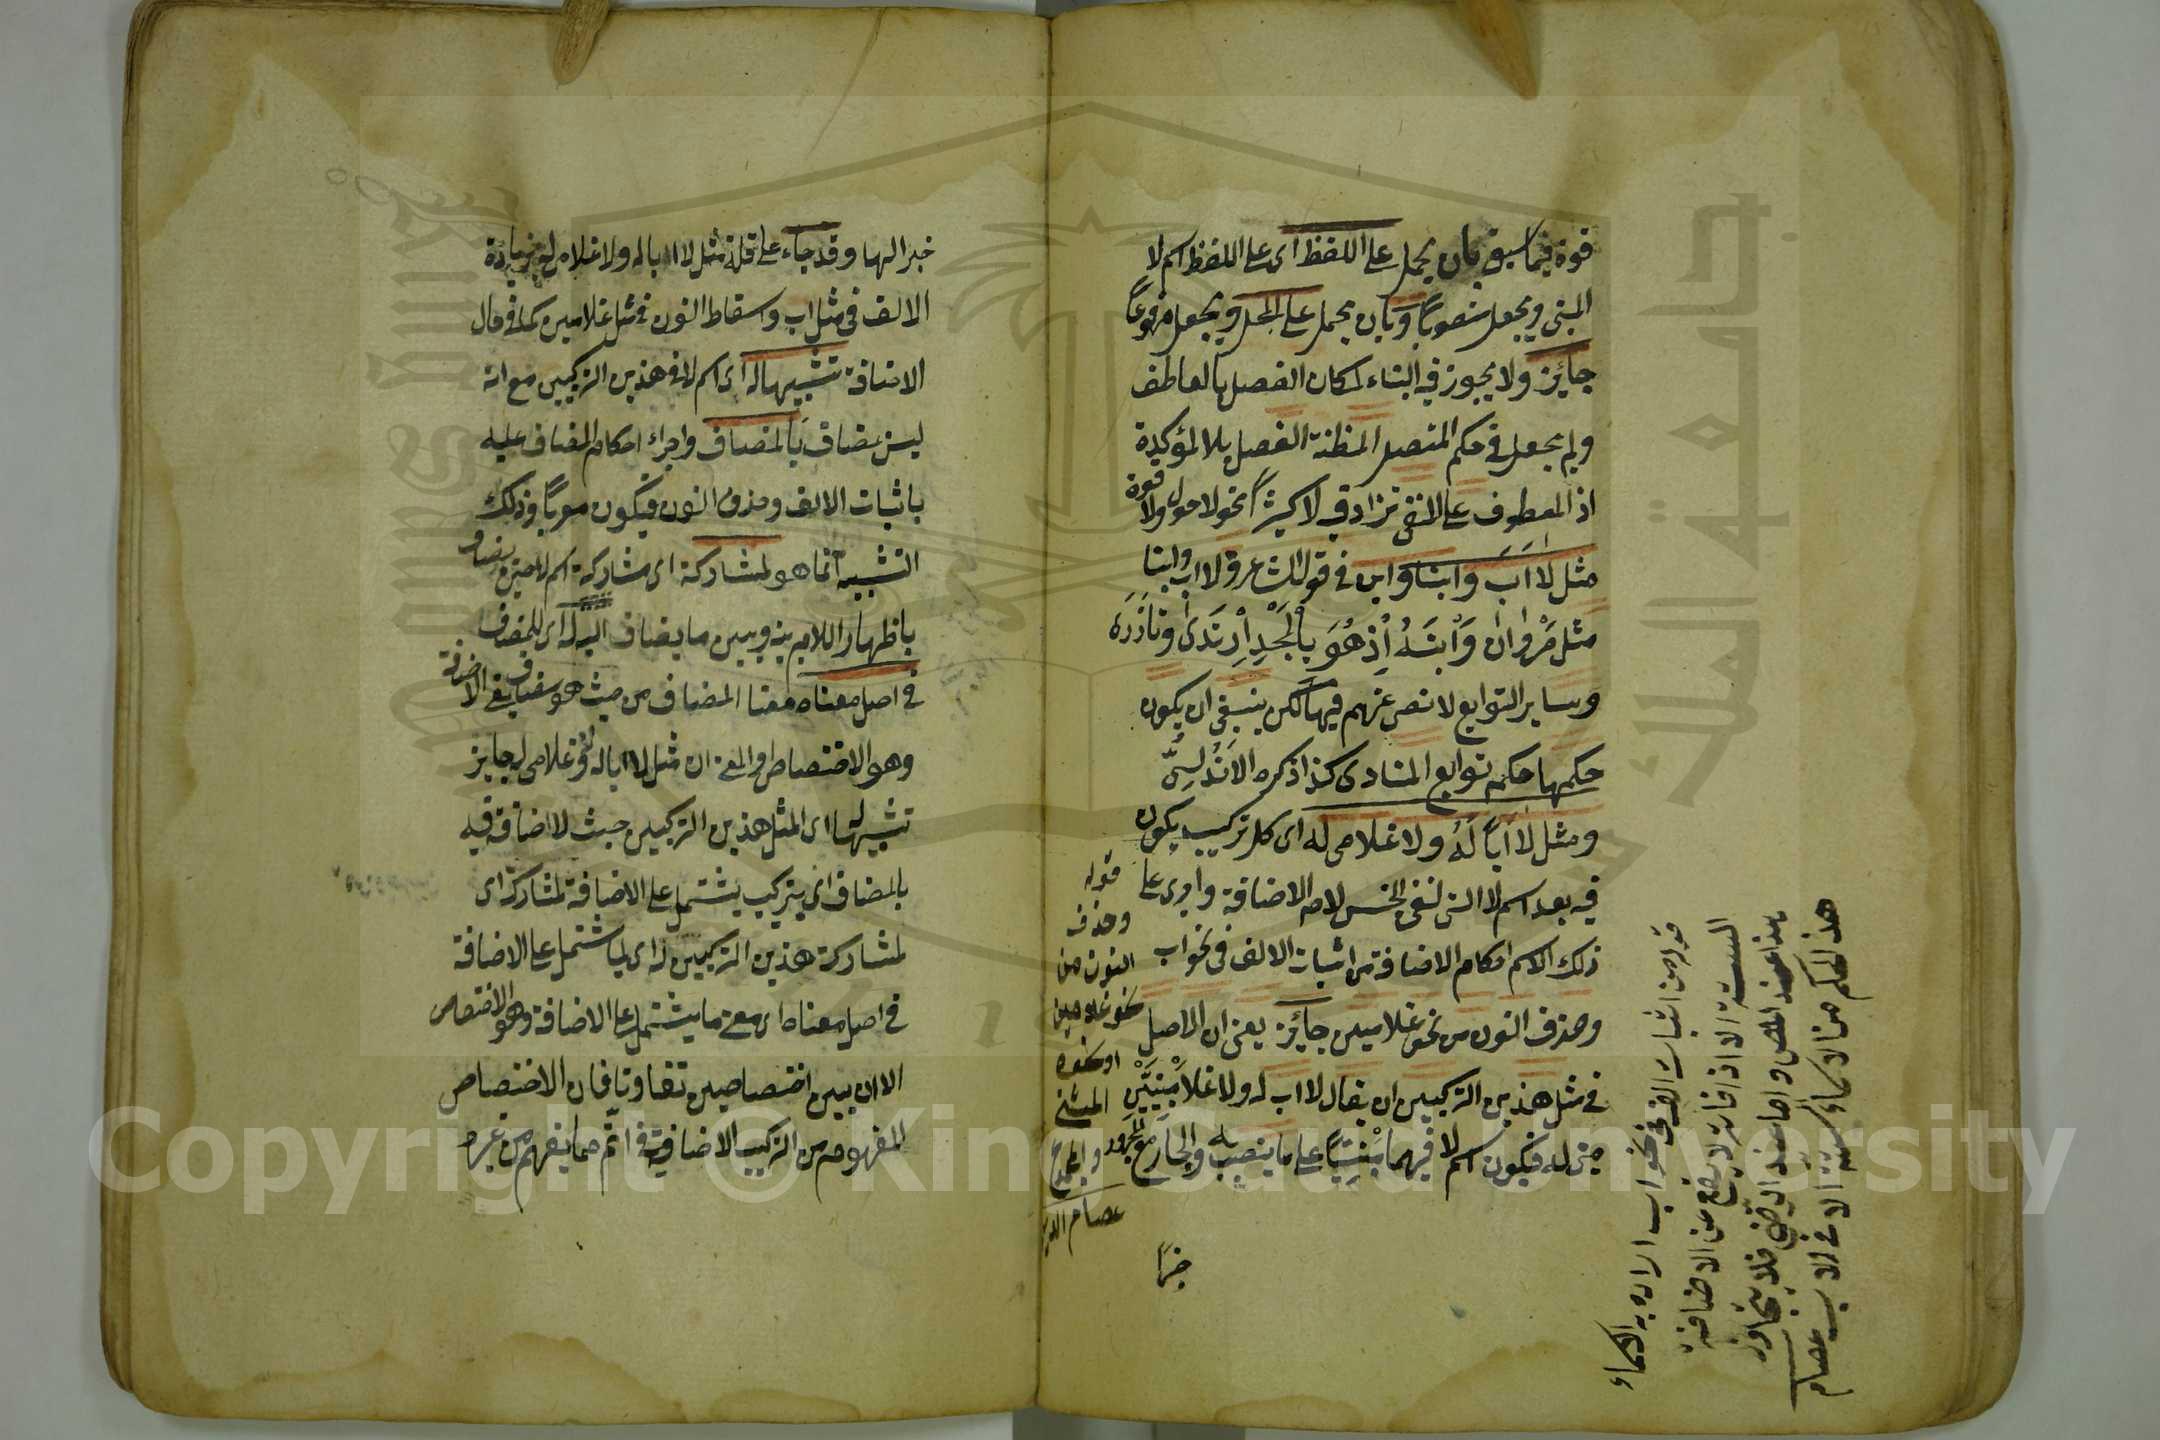 قوة فيما سبق بان يحمل على اللفظ اى على اللفظ اسم لا
المبنى ويجعل منصوباً وبان يحمل على المحل ويجعل مرفوعاً
جائز ولا يجوز فيه البناء لمكان الفصل بالعاطف
ولم يجعل فى حكم المتصل لمظنة الفصل بلا المؤكدة
اذ المعطوف على المنفى تزاد فيه لا كثيراً نحو لا حول ولا قوة
مثل لا اَبَ وابنا وابن فى قول الشاعر ولا اب وابنا
مثل مَرْوان وَابنَهُ اِذْ هُوَ بالْمَجْدِ ارتدى وتأزره
وساير التوابع لا نص عنهم فيها لكن ينبغى ان يكون
حكمها حكم توابع المنادى كذا ذكره الاَنْدُلسىّ
ومثل لا اَباً لَهُ ولا غلامى له اى كل تركيب يكون
فيه بعد اسم لا التى لنفى الجنس لام الاضافة واجرى على
ذلك الاسم احكام الاضافة من اثبات الالف فى نحو اب
وحذف النون من نحو غلامين جائز يعنى ان الاصل
فى مثل هذين التركيبين ان يقال لا اب له ولا غلامَيْنِ
له فيكون اسم لا فيهما مَبْنِيّاً على ما ينصب به والجار مع المجرور
خبرا
قوله
وحذف
النون من
نحو غلامين
او نحوه
المثنى
والمجموع
عصام الدين
قوله من اثبات الالف فى نحو اب اراد به الاسماء
الستة الا ذا فانه لا يقطع عن الاضافة
هذا الحكم من الاسماء الستة الا فى الاب عصام
خبرا لها وقد جاء على قلة مثل لا ابا له ولا غلامى له بزيادة
الالف فى مثل اب واسقاط النون فى مثل غلامين كما فى حال
الاضافة تشبيها له اى اسم لا فى هذين التركيبين مع انه
ليس بمضاف بالمضاف واجراء احكام المضاف عليه
باثبات الالف وحذف النون فيكون معرباً وذلك
التشبيه انما هو لمشاركته اى مشاركة اسم لا حين يضاف
باظهار اللام بينه وبين ما يضاف اليه له اى للمضاف
فى اصل معناه معنا المضاف من حيث هو مضاف يعنى الاضافة
وهو الاختصاص والمعنى ان مثل لا ابا له ولا غلامى له جايز
تشبيها له اى لمثل هذين التركيبين حيث لا اضافة فيه
بالمضاف اى بتركيب يشتمل على الاضافة لمشاركته اى
لمشاركة هذين التركيبين له اى لما يشتمل على الاضافة
فى اصل معناه اى معنى ما يشتمل على الاضافة وهو الاختصاص
الا ان بين اختصاصين تفاوتا فان الاختصاص
المفهوم من التركيب الاضافى اتم مما يفهم من غيره
Copyright © King Saud University